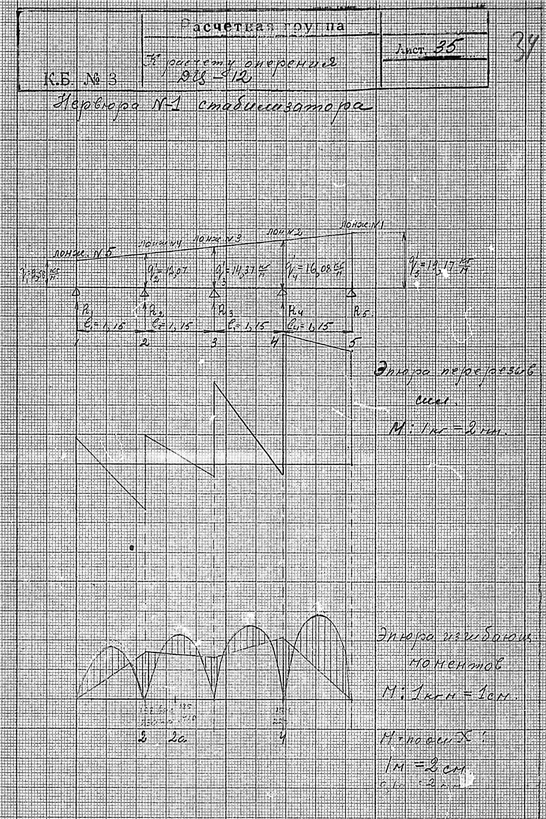 Расчетная группа
34
Лист. 35
К расчету оперения
К.Б. № 3
Нервюра N-1 стабилизатора
лонж. N1
лонж. N2
лонж. N3
лонж N4
лонж. N5
q'₂=12,07
q'₃=14,37 кг/м
q'₄=16,08 кг/м
R₁ R₂ R₃ R₄ R₅
l₁=1,15 l₂=1,15 l₃=1,15 l₄=1,15
1 2 3 4 5
Эпюра перерезыв.
сил.
М: 1кг=2мм.
Эпюра изгибающ.
моментов
М: 1кгм=1см.
2 2а 4
М по оси X:
1м=2см